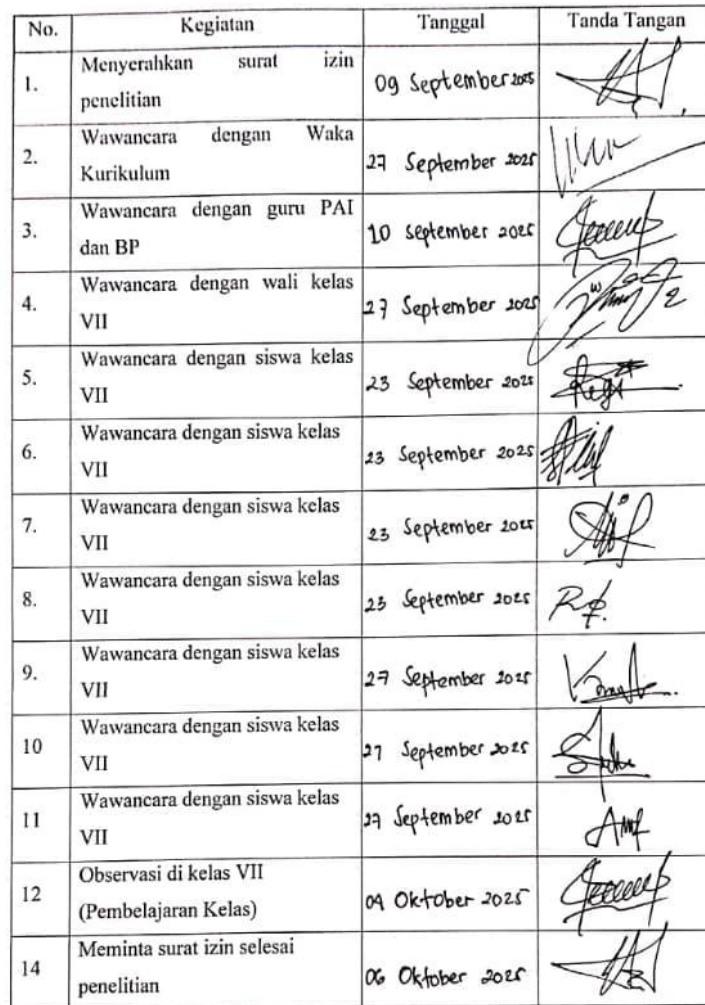 No. Kegiatan Tanggal Tanda Tangan
1. Menyerahkan surat izin
penelitian
09 September 2025
2. Wawancara dengan Waka
Kurikulum
27 September 2025
3. Wawancara dengan guru PAI
dan BP
10 September 2025
4. Wawancara dengan wali kelas
VII
27 September 2025
5. Wawancara dengan siswa kelas
VII
23 September 2025
6. Wawancara dengan siswa kelas
VII
23 September 2025
7. Wawancara dengan siswa kelas
VII
23 September 2025
8. Wawancara dengan siswa kelas
VII
23 September 2025
9. Wawancara dengan siswa kelas
VII
27 September 2025
10 Wawancara dengan siswa kelas
VII
27 September 2025
11 Wawancara dengan siswa kelas
VII
27 September 2025
12 Observasi di kelas VII
(Pembelajaran Kelas)
Oktober 2025
14 Meminta surat izin selesai
penelitian
06 Oktober 2025